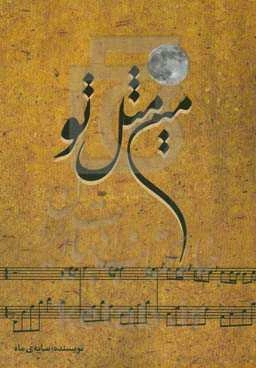 مین مثل تو
نویسنده: سایه‌ی ماه